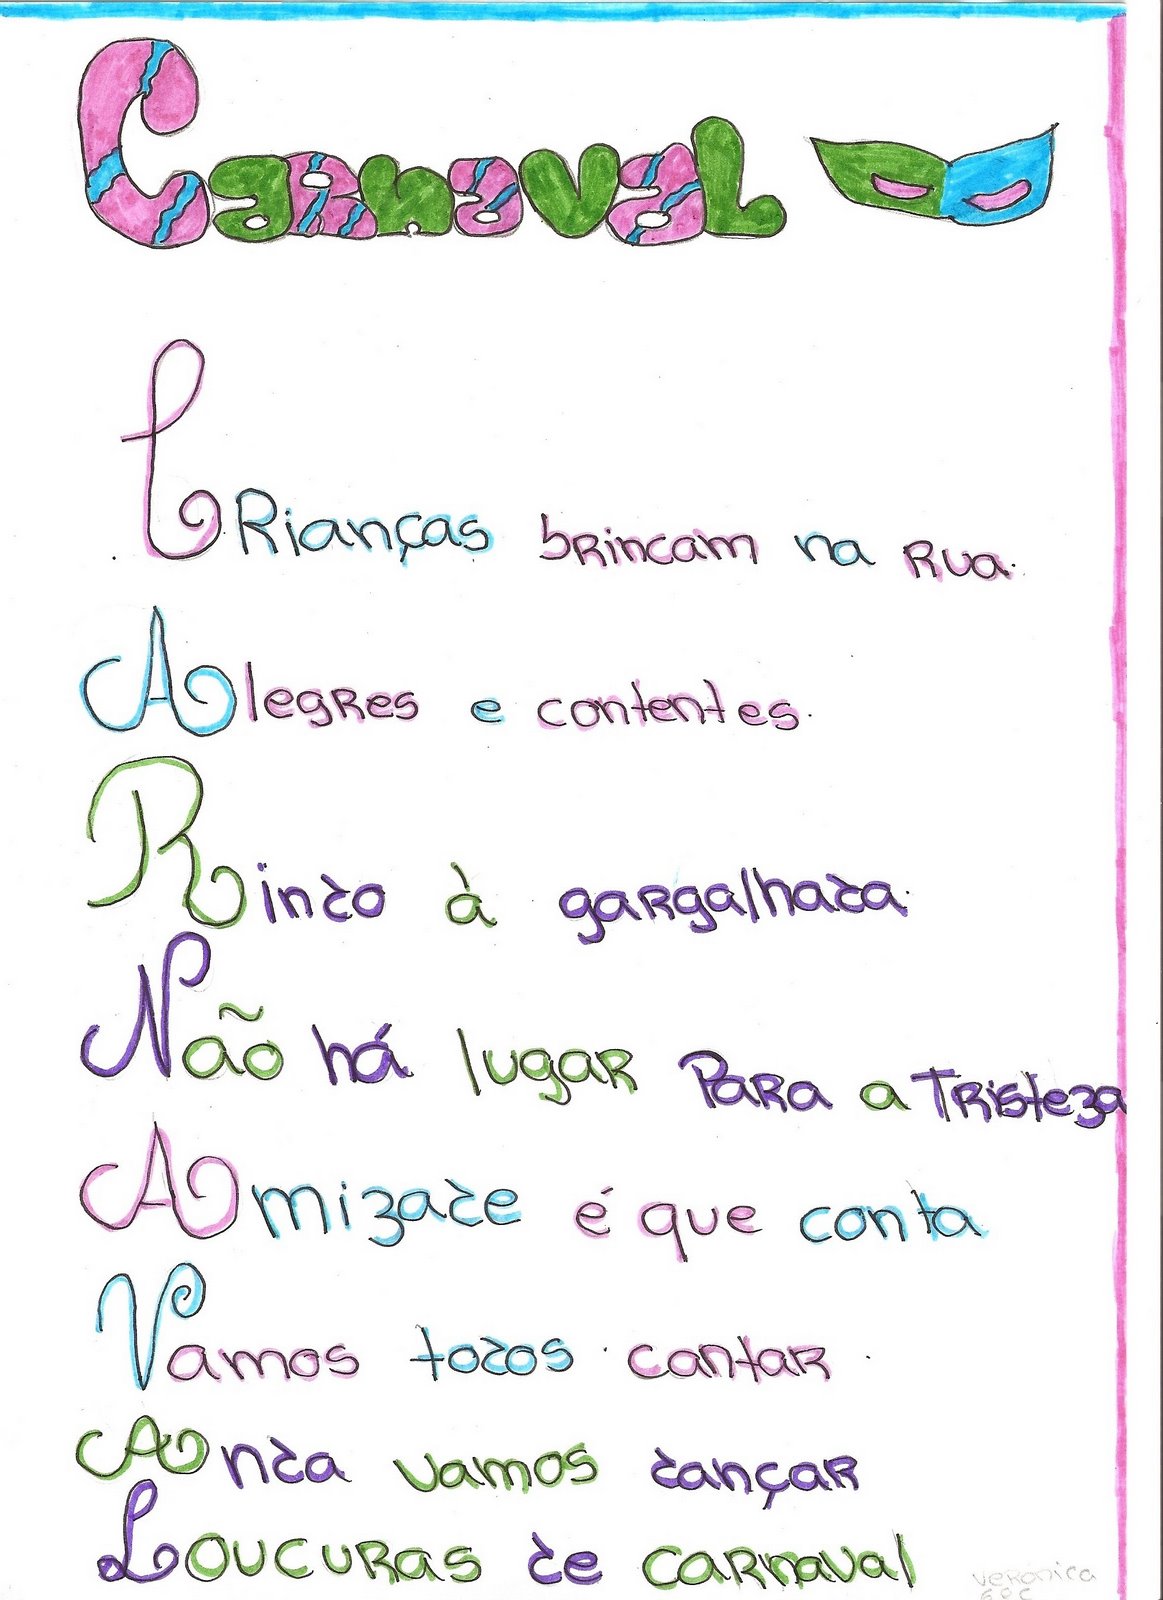 Carnaval
Crianças brincam na rua.
Alegres e contentes.
Rindo à gargalhada.
Não há lugar Para a Tristeza
Amizade é que conta
Vamos todos cantar.
Anda vamos dançar
Loucuras de carnaval
Veronica
6ºC